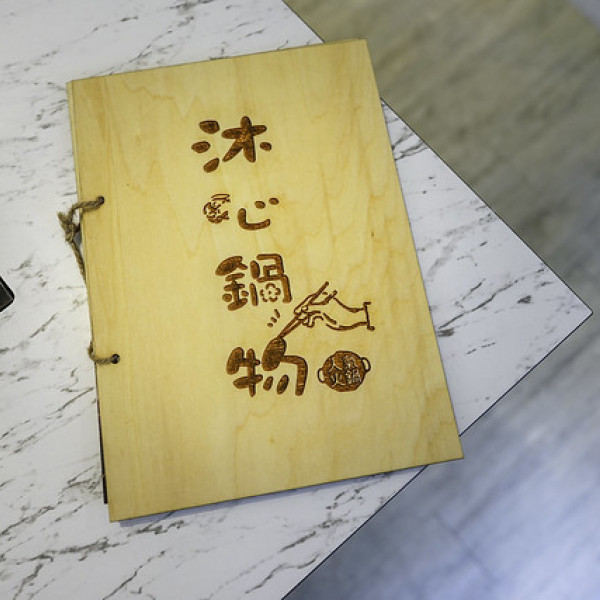 沐
心
鍋
物